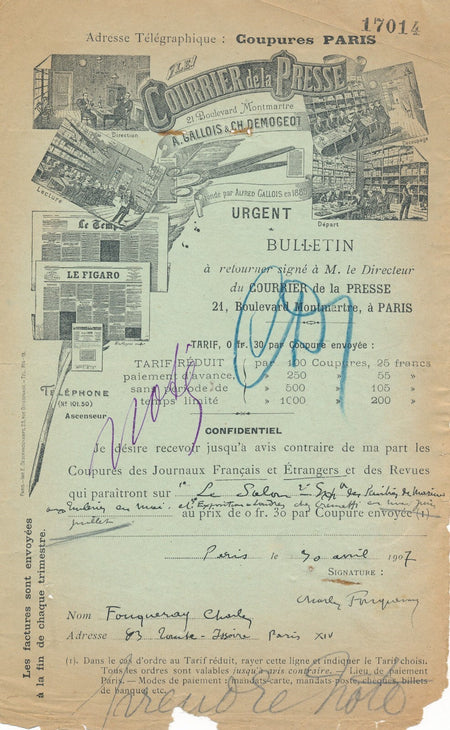 17014
Adresse Télégraphique : Coupures PARIS
LE
COURRIER de la PRESSE
21 Boulevard Montmartre
A. GALLOIS & CH. DEMOGEOT
Direction
Découpage
Lecture
Fondé par ALFRED GALLOIS en 1889
Départ
Le Temps
LE FIGARO
URGENT
BULLETIN
à retourner signé à M. le Directeur
du COURRIER de la PRESSE
21, Boulevard Montmartre, à PARIS
TARIF, 0 fr. 30 par Coupure envoyée :
TARIF RÉDUIT par 100 Coupures, 25 francs
paiement d'avance, » 250 » 55 »
sans période de » 500 » 105 »
temps limité » 1000 » 200 »
TÉLÉPHONE
(No 101.50)
Ascenseur
noté
CONFIDENTIEL
Je désire recevoir jusqu'à avis contraire de ma part les
Coupures des Journaux Français et Étrangers et des Revues
qui paraîtront sur 1º Le Salon 2º des Peintres de Marine
en mai. et Exposition à Londres en juin
juillet au prix de 0 fr. 30 par Coupure envoyée (1)
Paris le 30 avril 1907
SIGNATURE :
Charles Fouqueray
Nom Fouqueray Charles
Adresse 83 Tombe-Issoire Paris XIV
(1). Dans le cas d'ordre au Tarif réduit, rayer cette ligne et indiquer le Tarif choisi.
Tous les ordres sont valables jusqu'à avis contraire. — Lieu de paiement
Paris. — Modes de paiement : mandats-carte, mandats-poste, chèques, billets
de banque, etc.
prendre note
Les factures sont envoyées
à la fin de chaque trimestre.